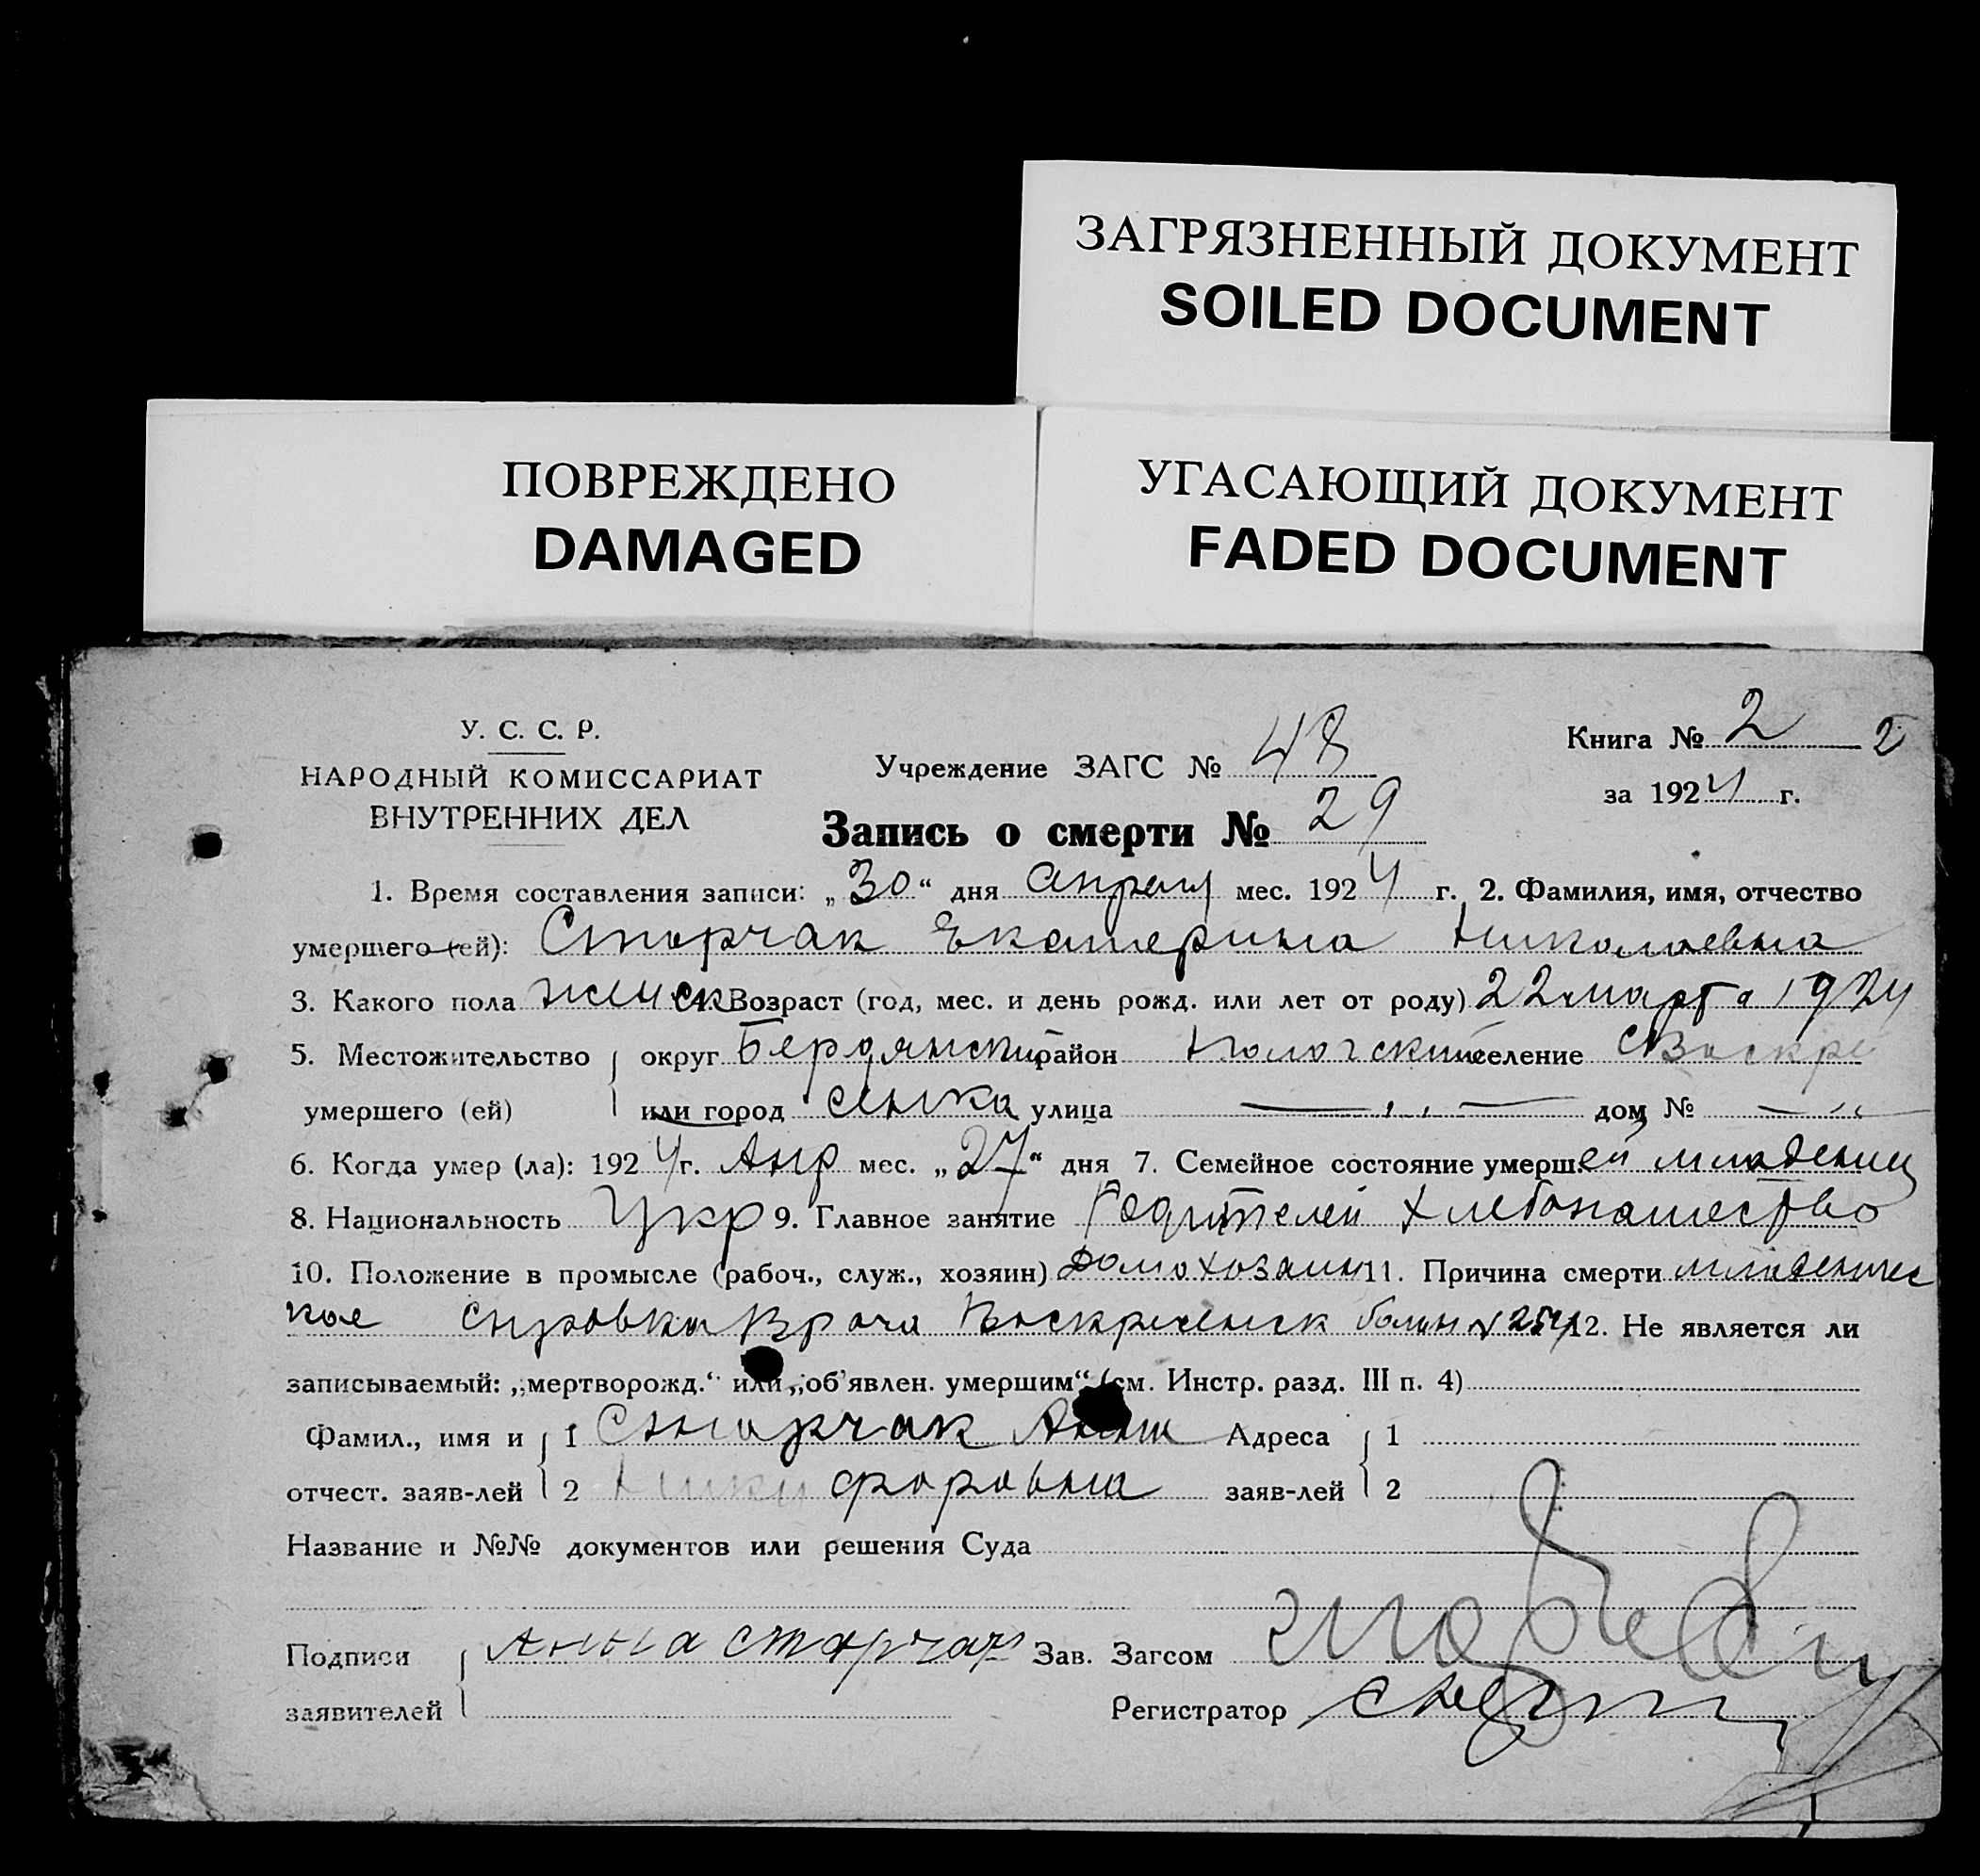 ЗАГРЯЗНЕННЫЙ ДОКУМЕНТ
SOILED DOCUMENT
ПОВРЕЖДЕНО
DAMAGED
УГАСАЮЩИЙ ДОКУМЕНТ
FADED DOCUMENT
У. С. С. Р.
НАРОДНЫЙ КОМИССАРИАТ
ВНУТРЕННИХ ДЕЛ
Учреждение ЗАГС № 48
Книга № 2 2
за 1924 г.
Запись о смерти № 29
1. Время составления записи: „30“ дня апреля мес. 1924 г. 2. Фамилия, имя, отчество
умершего (ей): Сторчак Екатерина Николаевна
3. Какого пола женск 4. Возраст (год, мес. и день рожд. или лет от роду) 22 марта 1924
5. Местожительство округ Бердянский район Пологский селение С Воскре
умершего (ей) или город сенка улица — „ — дом № — „
6. Когда умер (ла): 1924 г. Апр мес. „27“ дня 7. Семейное состояние умерш.ей младенец
8. Национальность Укр 9. Главное занятие Родителей хлебопашество
10. Положение в промысле (рабоч., служ., хозяин) домохозаин 11. Причина смерти младенчес
кое справка Врача Воскресенск больн № 254 12. Не является ли
записываемый: „мертворожд.“ или „об'явлен. умершим“ (см. Инстр. разд. III п. 4)
Фамил., имя и 1 Сторчак Анна Адреса 1
отчест. заяв-лей 2 Никифоровна заяв-лей 2
Название и №№ документов или решения Суда
Подписи Анна Сторчак Зав. Загсом
заявителей Регистратор